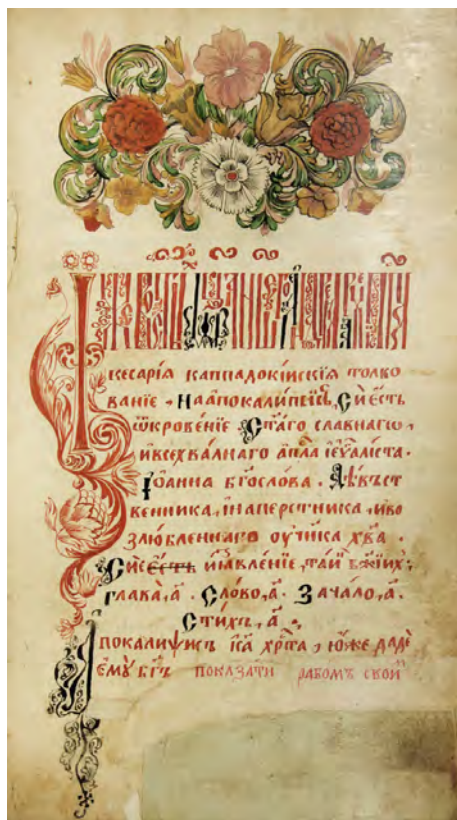 кесарїѧ каппадокїискїѧ толко
ванїе , Наапокалиѱїсъ, Сиесть
ѿкровенїе Ст҃аго славнагѡ ,
ивсехвалнаго ап҃ла їеѵ҃алїста .
Їоанна бг҃ослова . Дѣвъст
венника, инаперстника, иво
злюбленнаго оуч҃ика хв҃а .
Сиесть иꙗвленїе, таи бж҃їих;
глава, а҃ . Слово, а҃ . Зачало, а҃ .
Стихъ, а҃ .
Апокалиѱисъ іс҃а хрⷭ҇та , юже даде
ємꙋ бг҃ъ показати рабомъ свои